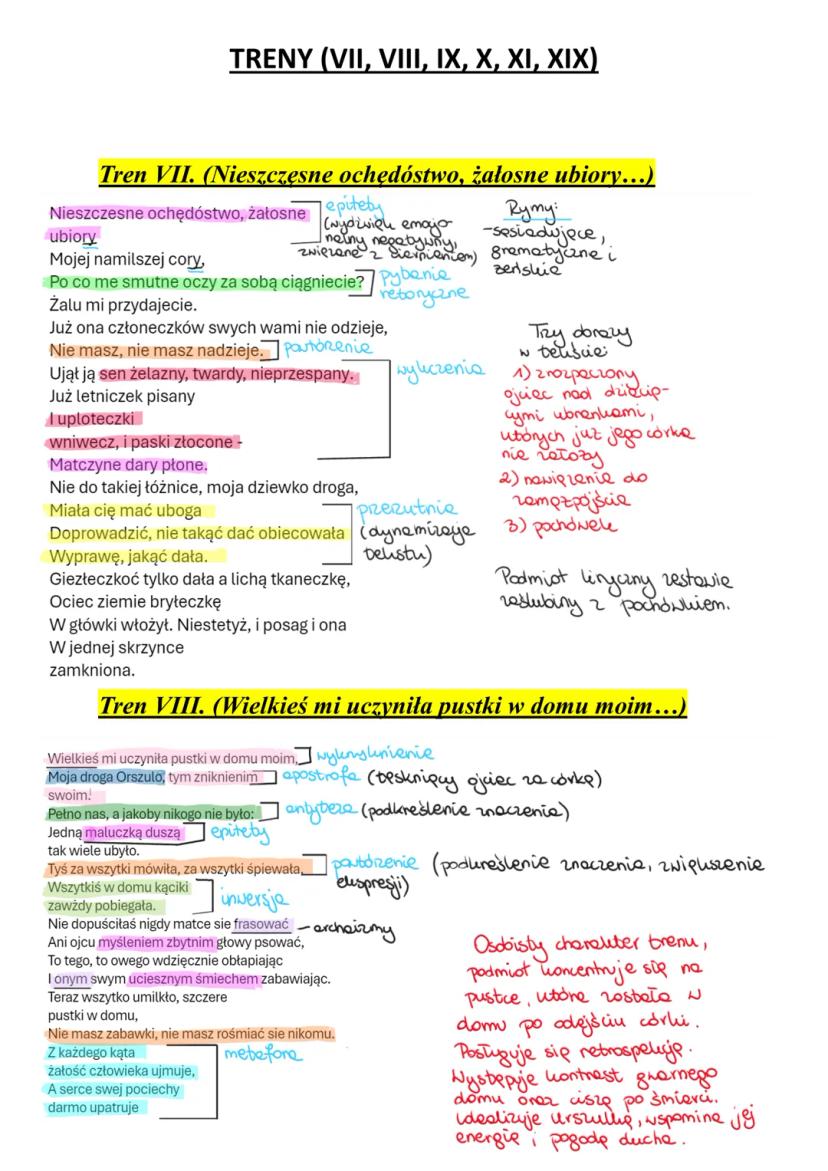 TRENY (VII, VIII, IX, X, XI, XIX)
Tren VII. (Nieszczęsne ochędóstwo, żałosne ubiory…)
Nieszczesne ochędóstwo, żałosne
ubiory
Mojej namilszej cory,
Po co me smutne oczy za sobą ciągniecie?
Żalu mi przydajecie.
Już ona członeczków swych wami nie odzieje,
Nie masz, nie masz nadzieje.
Ujął ją sen żelazny, twardy, nieprzespany.
Już letniczek pisany
I uploteczki
wniwecz, i paski złocone -
Matczyne dary płone.
Nie do takiej łóżnice, moja dziewko droga,
Miała cię mać uboga
Doprowadzić, nie takąć dać obiecowała
Wyprawę, jakąć dała.
Giezłeczkoć tylko dała a lichą tkaneczkę,
Ociec ziemie bryłeczkę
W główki włożył. Niestetyż, i posag i ona
W jednej skrzynce
zamkniona.
epitety
(wydźwięk emojo-
nalny negatywny,
związane z cierpieniem)
pytanie
retoryczne
powtórzenie
wyliczenia
przerzutnia
(dynamizacja
tekstu)
Rymy:
-sąsiadujące,
gramatyczne i
żeńskie
Trzy obrazy
w tekście:
1) zrozpaczony
ojciec nad dziecię-
cymi ubrankami,
których już jego córka
nie założy
2) nawiązanie do
zamążpójścia
3) pochówek
Podmiot liryczny zestawia
zaślubiny z pochówkiem.
Tren VIII. (Wielkieś mi uczyniła pustki w domu moim…)
Wielkieś mi uczyniła pustki w domu moim,
Moja droga Orszulo, tym zniknienim
swoim.
Pełno nas, a jakoby nikogo nie było:
Jedną maluczką duszą
tak wiele ubyło.
Tyś za wszytki mówiła, za wszytki śpiewała,
Wszytkiś w domu kąciki
zawżdy pobiegała.
Nie dopuściłaś nigdy matce sie frasować
Ani ojcu myśleniem zbytnim głowy psować,
To tego, to owego wdzięcznie obłapiając
I onym swym uciesznym śmiechem zabawiając.
Teraz wszytko umilkło, szczere
pustki w domu,
Nie masz zabawki, nie masz rośmiać sie nikomu.
Z każdego kąta
żałość człowieka ujmuje,
A serce swej pociechy
darmo upatruje
wykrzyknienie
apostrofa (tęskniący ojciec za córką)
antyteza (podkreślenie znaczenia)
epitety
powtórzenie (podkreślenie znaczenia, zwiększenie
ekspresji)
inwersja
- archaizmy
metafora
Osobisty charakter trenu,
podmiot koncentruje się na
pustce, która została w
domu po odejściu córki.
Posługuje się retrospekcją.
Występuje kontrast gwarnego
domu oraz ciszą po śmierci.
Idealizuje Urszulkę, wspomina jej
energię i pogodę ducha.